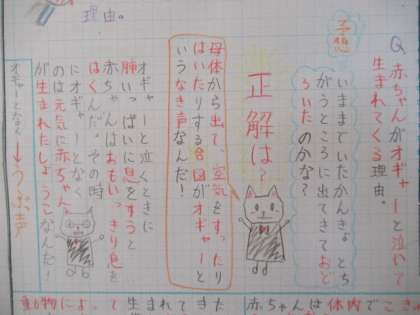 理由。
Q 赤ちゃんがオギャーと泣いて
生まれてくる理由。
予想
いままでいたかんきょうとち
がうところに出てきておど
ろいたのかな?
正解は?
母体から出て、空気をすったり
はいたりする合図がオギャーと
いうなき声なんだ!
オギャーと泣くときに
肺いっぱいに息をすうと
赤ちゃんはおもいっきり息を
はくんだ。その時
にオギャーとなく
のは元気に赤ちゃん
が生まれたしょうこなんだ!
オギャーとなく→うぶ声
赤ちゃんは体内で
生まれてきた
動物によって